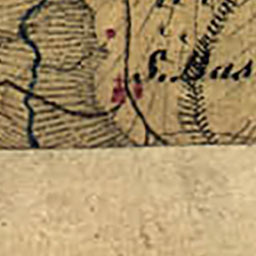 S. Bas